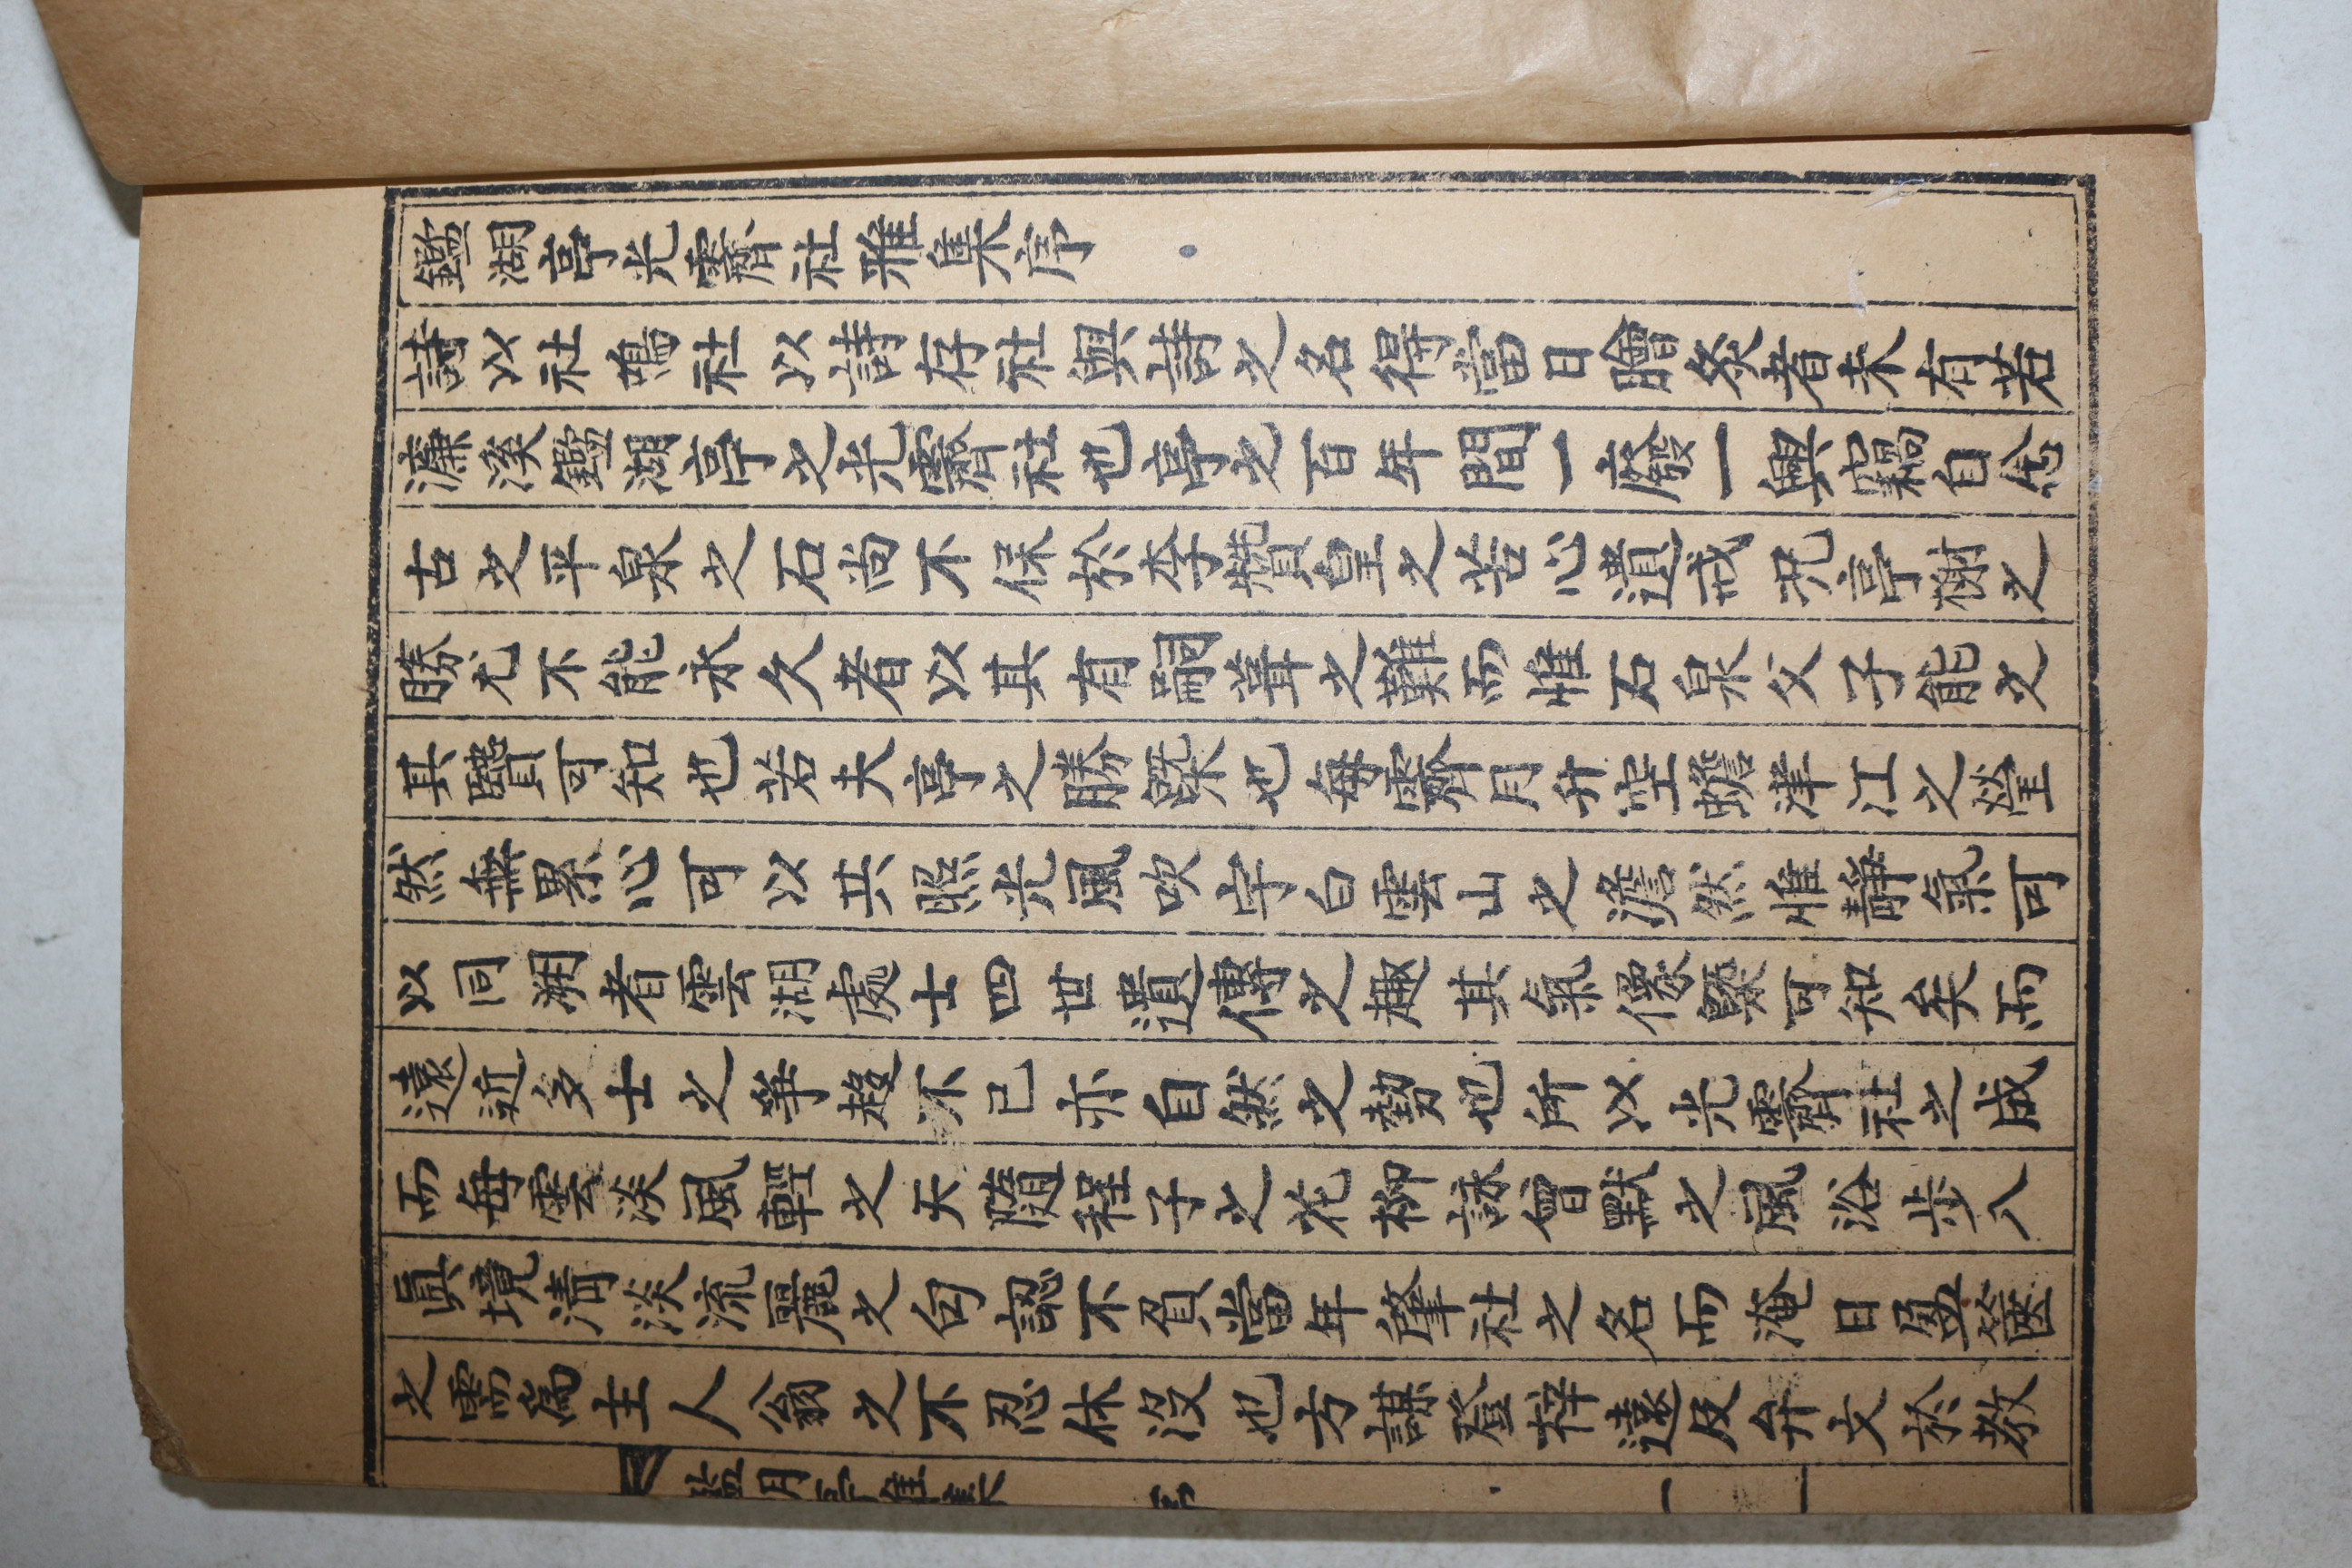 鑑湖亭光霽社雅集序
詩以社鳴社以詩存社與詩之名得當日膾炙者未有若
濂溪鑑湖亭之光霽社也亭之百年間一廢一興竊自念
古之平泉之石尚不保於李贊皇之苦心遺戒況亭榭之
勝尤不能永久者以其有嗣葺之難而惟石泉父子能之
其賢可知也若夫亭之勝槩也每霽月升空蟾津江之瑩
然無累心可以共照光風吹宇白雲山之澹然惟靜氣可
以同溯者雲湖處士四世遺傳之趣其氣像槩可知矣而
遠近多士之爭趍不已亦自然之勢也所以光霽社之成
而每雲淡風輕之天隨程子之花柳詠曾點之風浴步入
眞境淸淡流麗之句認不負當年肇社之名而淹日盈篋
之需爲主人翁之不忍休沒也方謀登梓遠及弁文於敎
鑑湖亭雅集 序 一